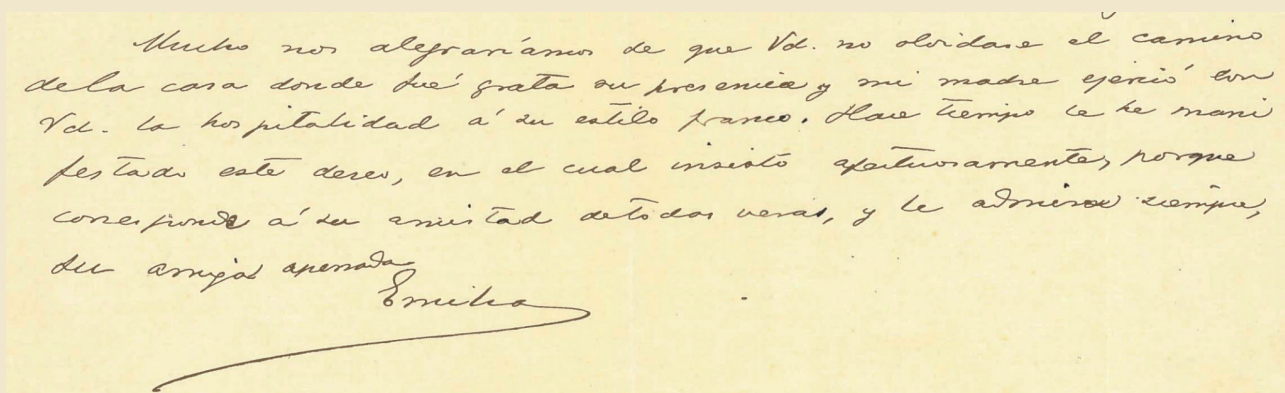 Mucho nos alegraríamos de que Vd. no olvidase el camino
de la casa donde fué grata su presencia y mi madre ejerció con
Vd. la hospitalidad á su estilo franco. Hace tiempo le he mani
festado este deseo, en el cual insisto afectuosamente, porque
corresponde á su amistad de todas veras, y le admira siempre,
su amiga apenada
Emilia